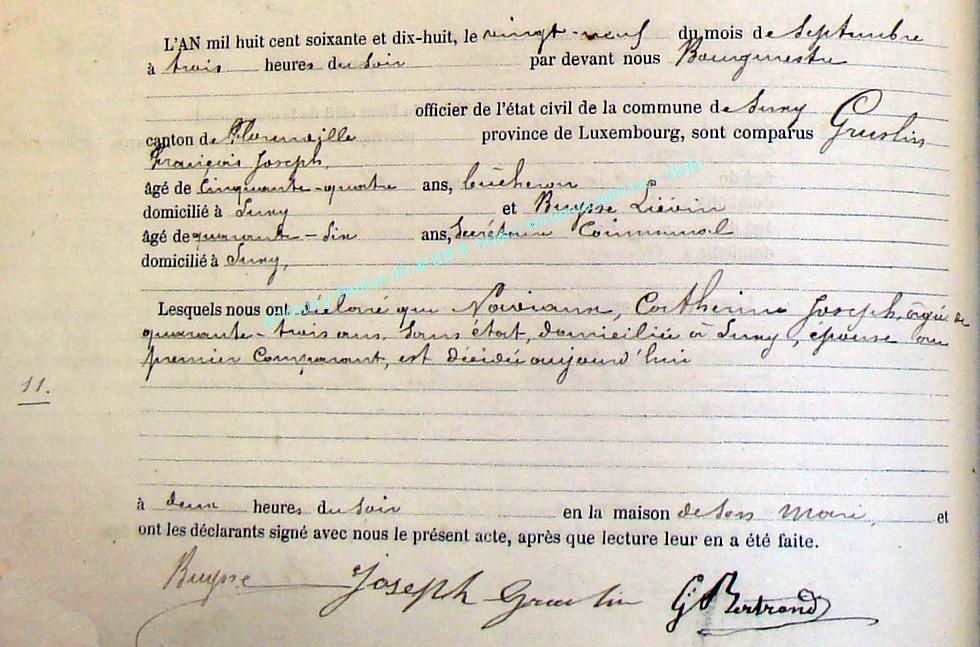 L'AN mil huit cent soixante et dix-huit, le vingt-neuf du mois de Septembre
à trois heures du soir par devant nous Bourgmestre
officier de l'état civil de la commune de Suxy
canton de Florenville province de Luxembourg, sont comparus Gruslin
François Joseph,
âgé de cinquante-quatre ans, bûcheron
domicilié à Suxy et Buysse Liévin
âgé de quarante-six ans, Secrétaire Communal
domicilié à Suxy,
Lesquels nous ont déclaré que Noviaux, Catherine Joseph, âgée de
quarante-trois ans, sans état, domiciliée à Suxy, épouse au
premier comparant, est décédée aujourd'hui
11.
à deux heures du soir en la maison de son mari, et
ont les déclarants signé avec nous le présent acte, après que lecture leur en a été faite.
Buysse Joseph Gruslin G Bertrand